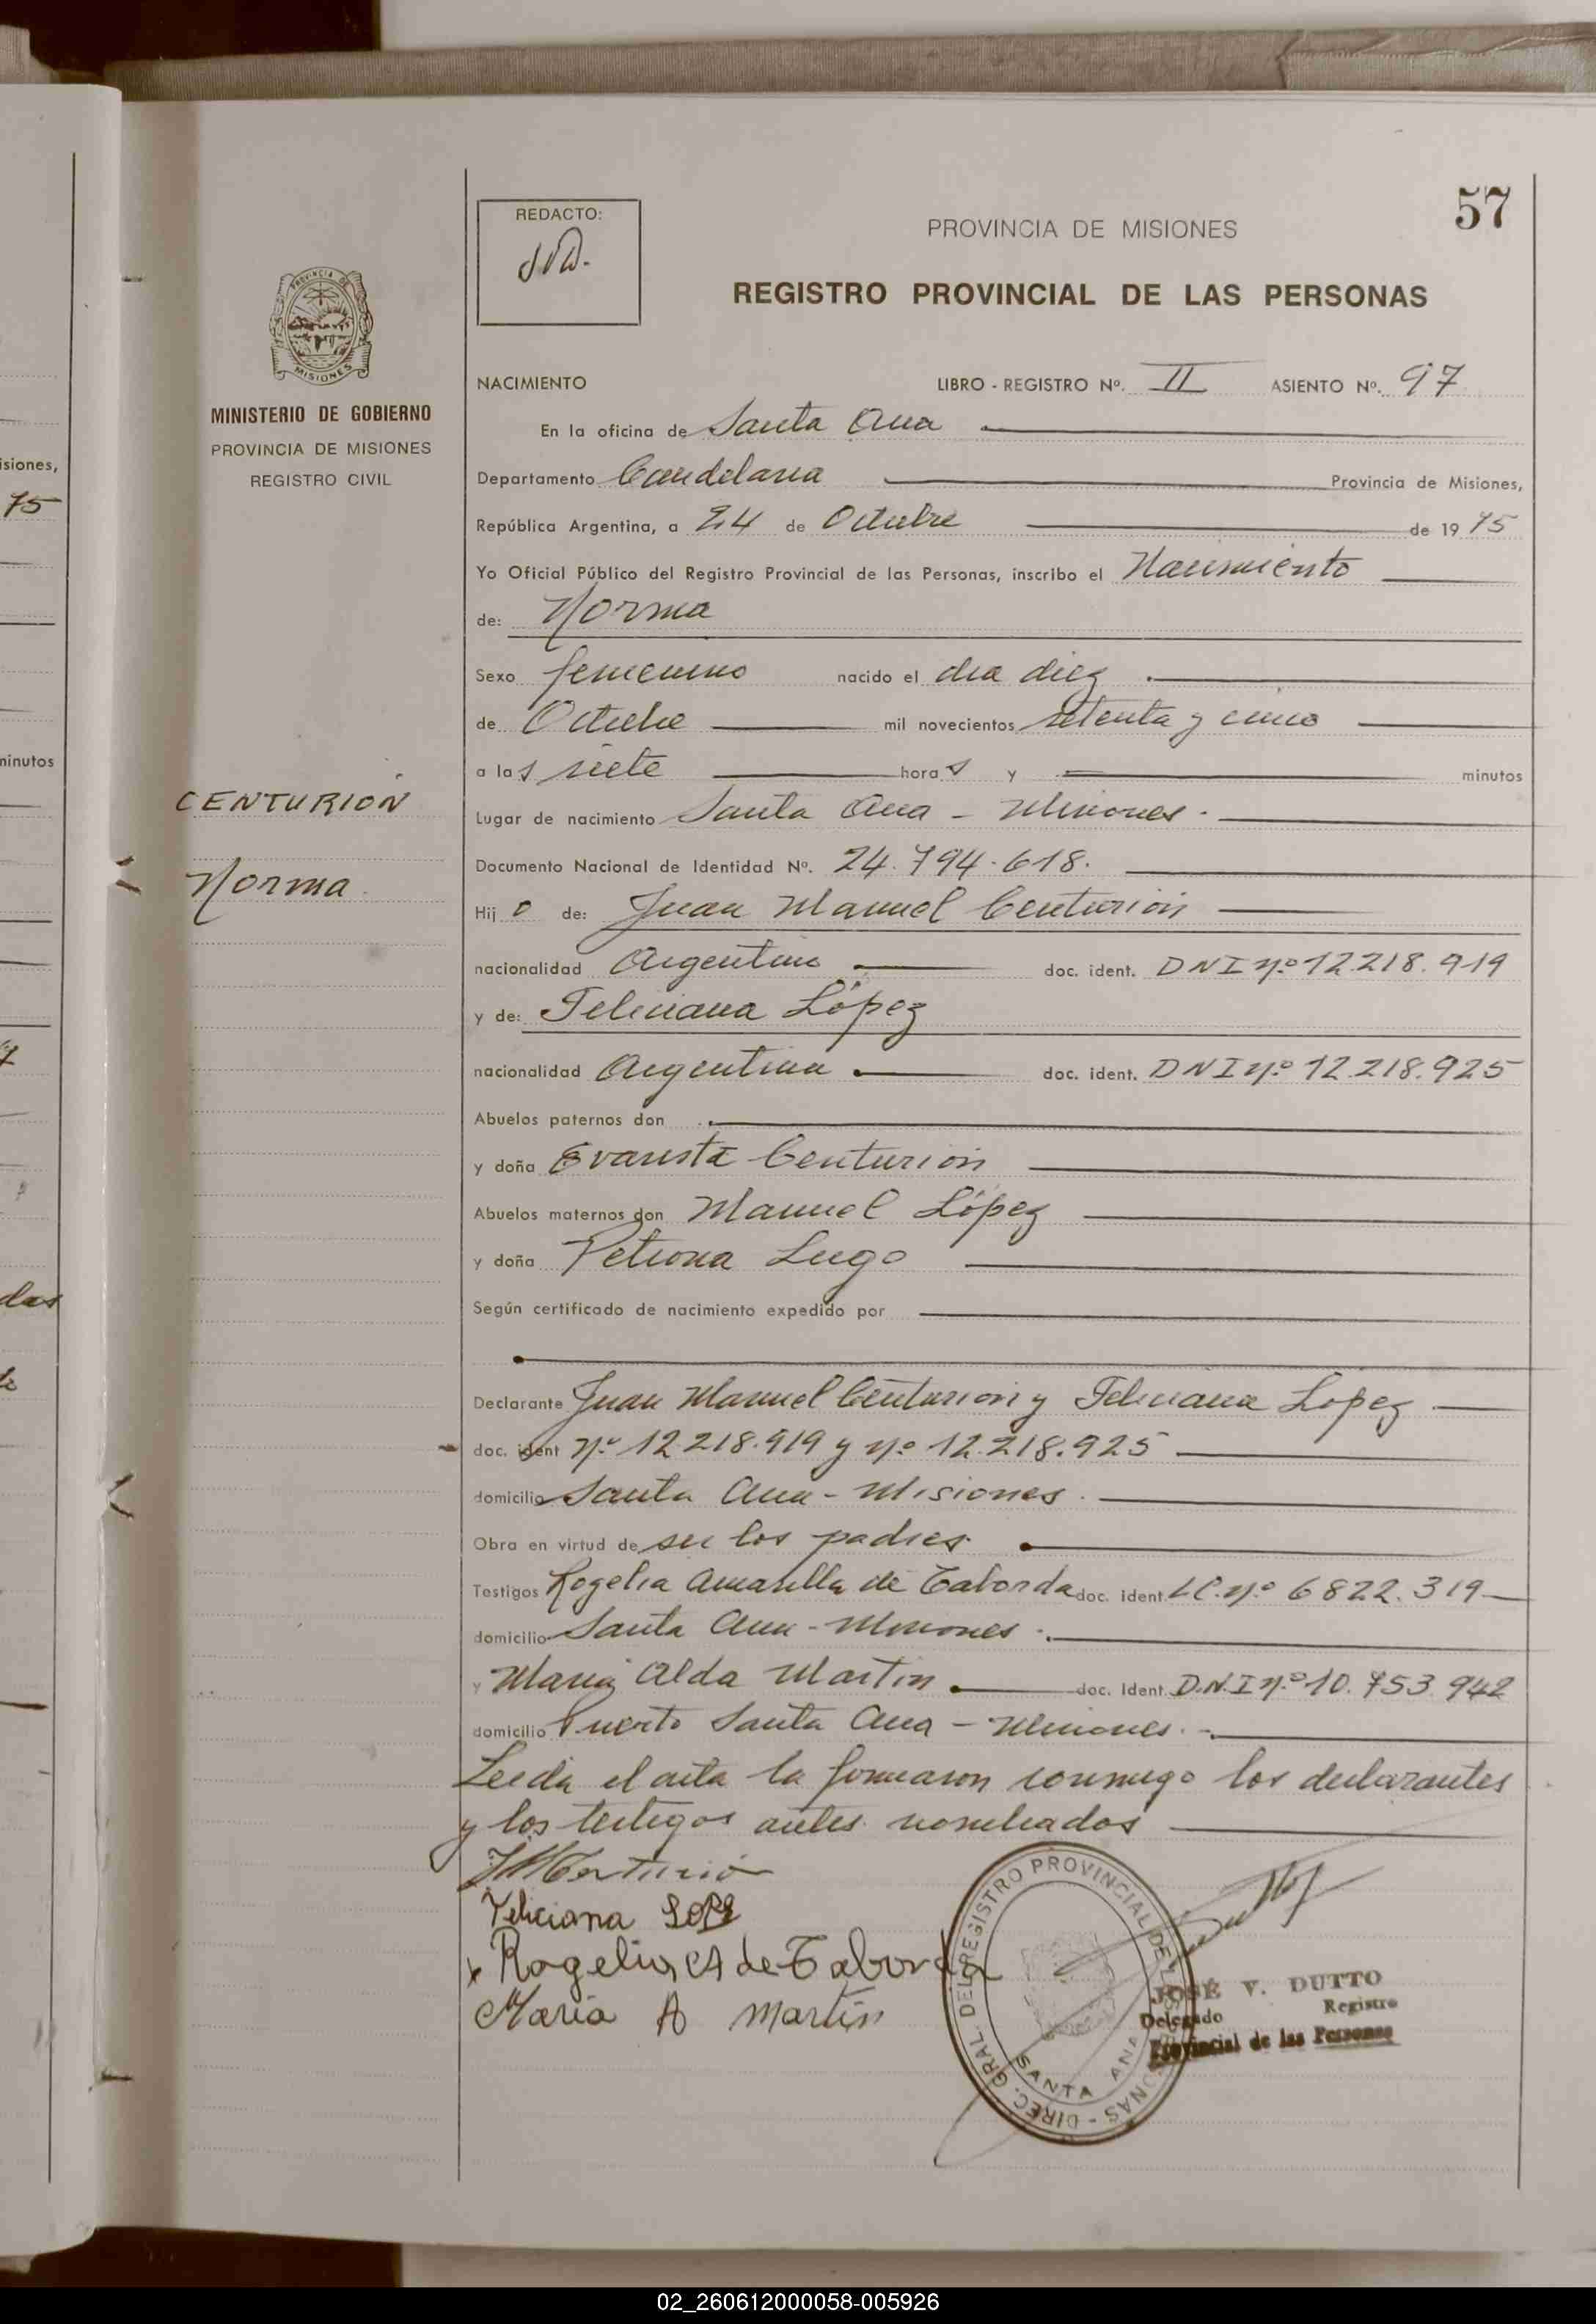 57
REDACTO:
PROVINCIA DE MISIONES
REGISTRO PROVINCIAL DE LAS PERSONAS
PROVINCIA DE
MISIONES
MINISTERIO DE GOBIERNO
PROVINCIA DE MISIONES
REGISTRO CIVIL
NACIMIENTO LIBRO - REGISTRO Nº. II ASIENTO Nº. 97
En la oficina de Santa Ana
Departamento Candelaria Provincia de Misiones,
República Argentina, a 24 de Octubre de 1975
Yo Oficial Público del Registro Provincial de las Personas, inscribo el Nacimiento
de: Norma
Sexo femenino nacido el dia diez
de Octubre mil novecientos setenta y cinco
a las siete horas y minutos
CENTURION
Lugar de nacimiento Santa Ana - Misiones.
Documento Nacional de Identidad Nº. 24.794.618.
Norma
Hijo de: Juan Manuel Centurión
nacionalidad Argentino doc. ident. DNI nº 12.218.919
y de: Feliciana López
nacionalidad Argentina doc. ident. DNI nº 12.218.925
Abuelos paternos don
y doña Evarista Centurión
Abuelos maternos don Manuel López
y doña Petrona Lugo
Según certificado de nacimiento expedido por
Declarante Juan Manuel Centurión y Feliciana López
doc. ident nº 12.218.919 y nº 12.218.925
domicilio Santa Ana - Misiones.
Obra en virtud de ser los padres
Testigos Rogelia Amarilla de Taborda doc. ident. LC. nº 6822.319
domicilio Santa Ana - Misiones.
y Maria Alda Martin doc. Ident. D.N.I nº 10.753.942
domicilio Puerto Santa Ana - Misiones.
Leida el acta la firmaron conmigo los declarantes
y los testigos antes nombrados
JMCenturió
Feliciana Lope
Rogelia A de Taborda
Maria A Martin
DIREC. GRAL. DEL REGISTRO PROVINCIAL DE LAS PERSONAS -
SANTA ANA
JOSÉ V. DUTTO
Delegado Registro
Provincial de las Personas
isiones,
75
minutos
das
02_260612000058-005926